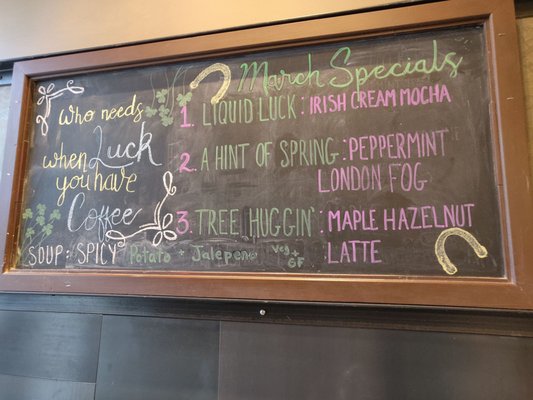 March Specials
Who needs
Luck
when
you have
Coffee
1. LIQUID LUCK: IRISH CREAM MOCHA
2. A HINT OF SPRING: PEPPERMINT
LONDON FOG
3. TREE HUGGIN': MAPLE HAZELNUT
LATTE
SOUP: SPICY Potato + Jalepeno veg + GF